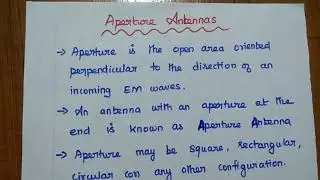 Aperture Antennas
→ Aperture is the open area oriented
perpendicular to the direction of an
incoming EM waves.
→ An antenna with an aperture at the
end is known as Aperture Antenna
→ Aperture may be square, rectangular,
circular (or) any other configuration.